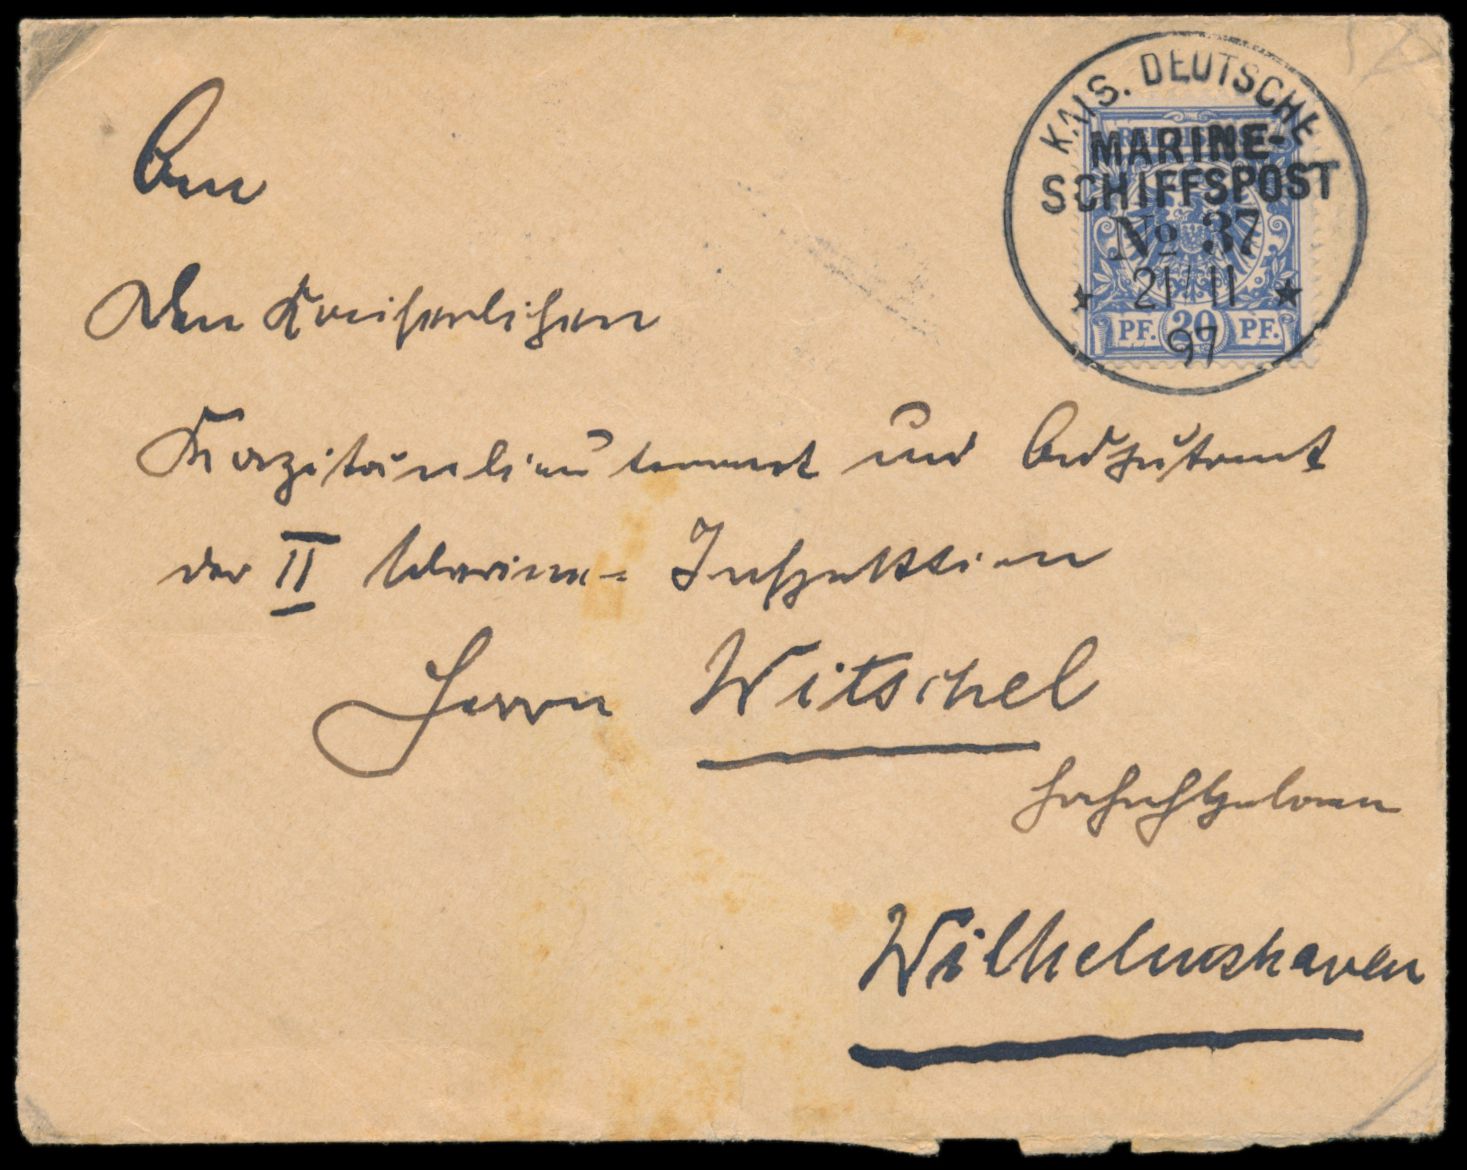 KAIS. DEUTSCHE
MARINE-
SCHIFFSPOST
No 37
21/11
97
PF. 20 PF.
An
den Kaiserlichen
Kapitänlieutenant und Adjutant
der II Marine-Inspektion
Herrn Witschel
Hochwohlgeboren
Wilhelmshaven